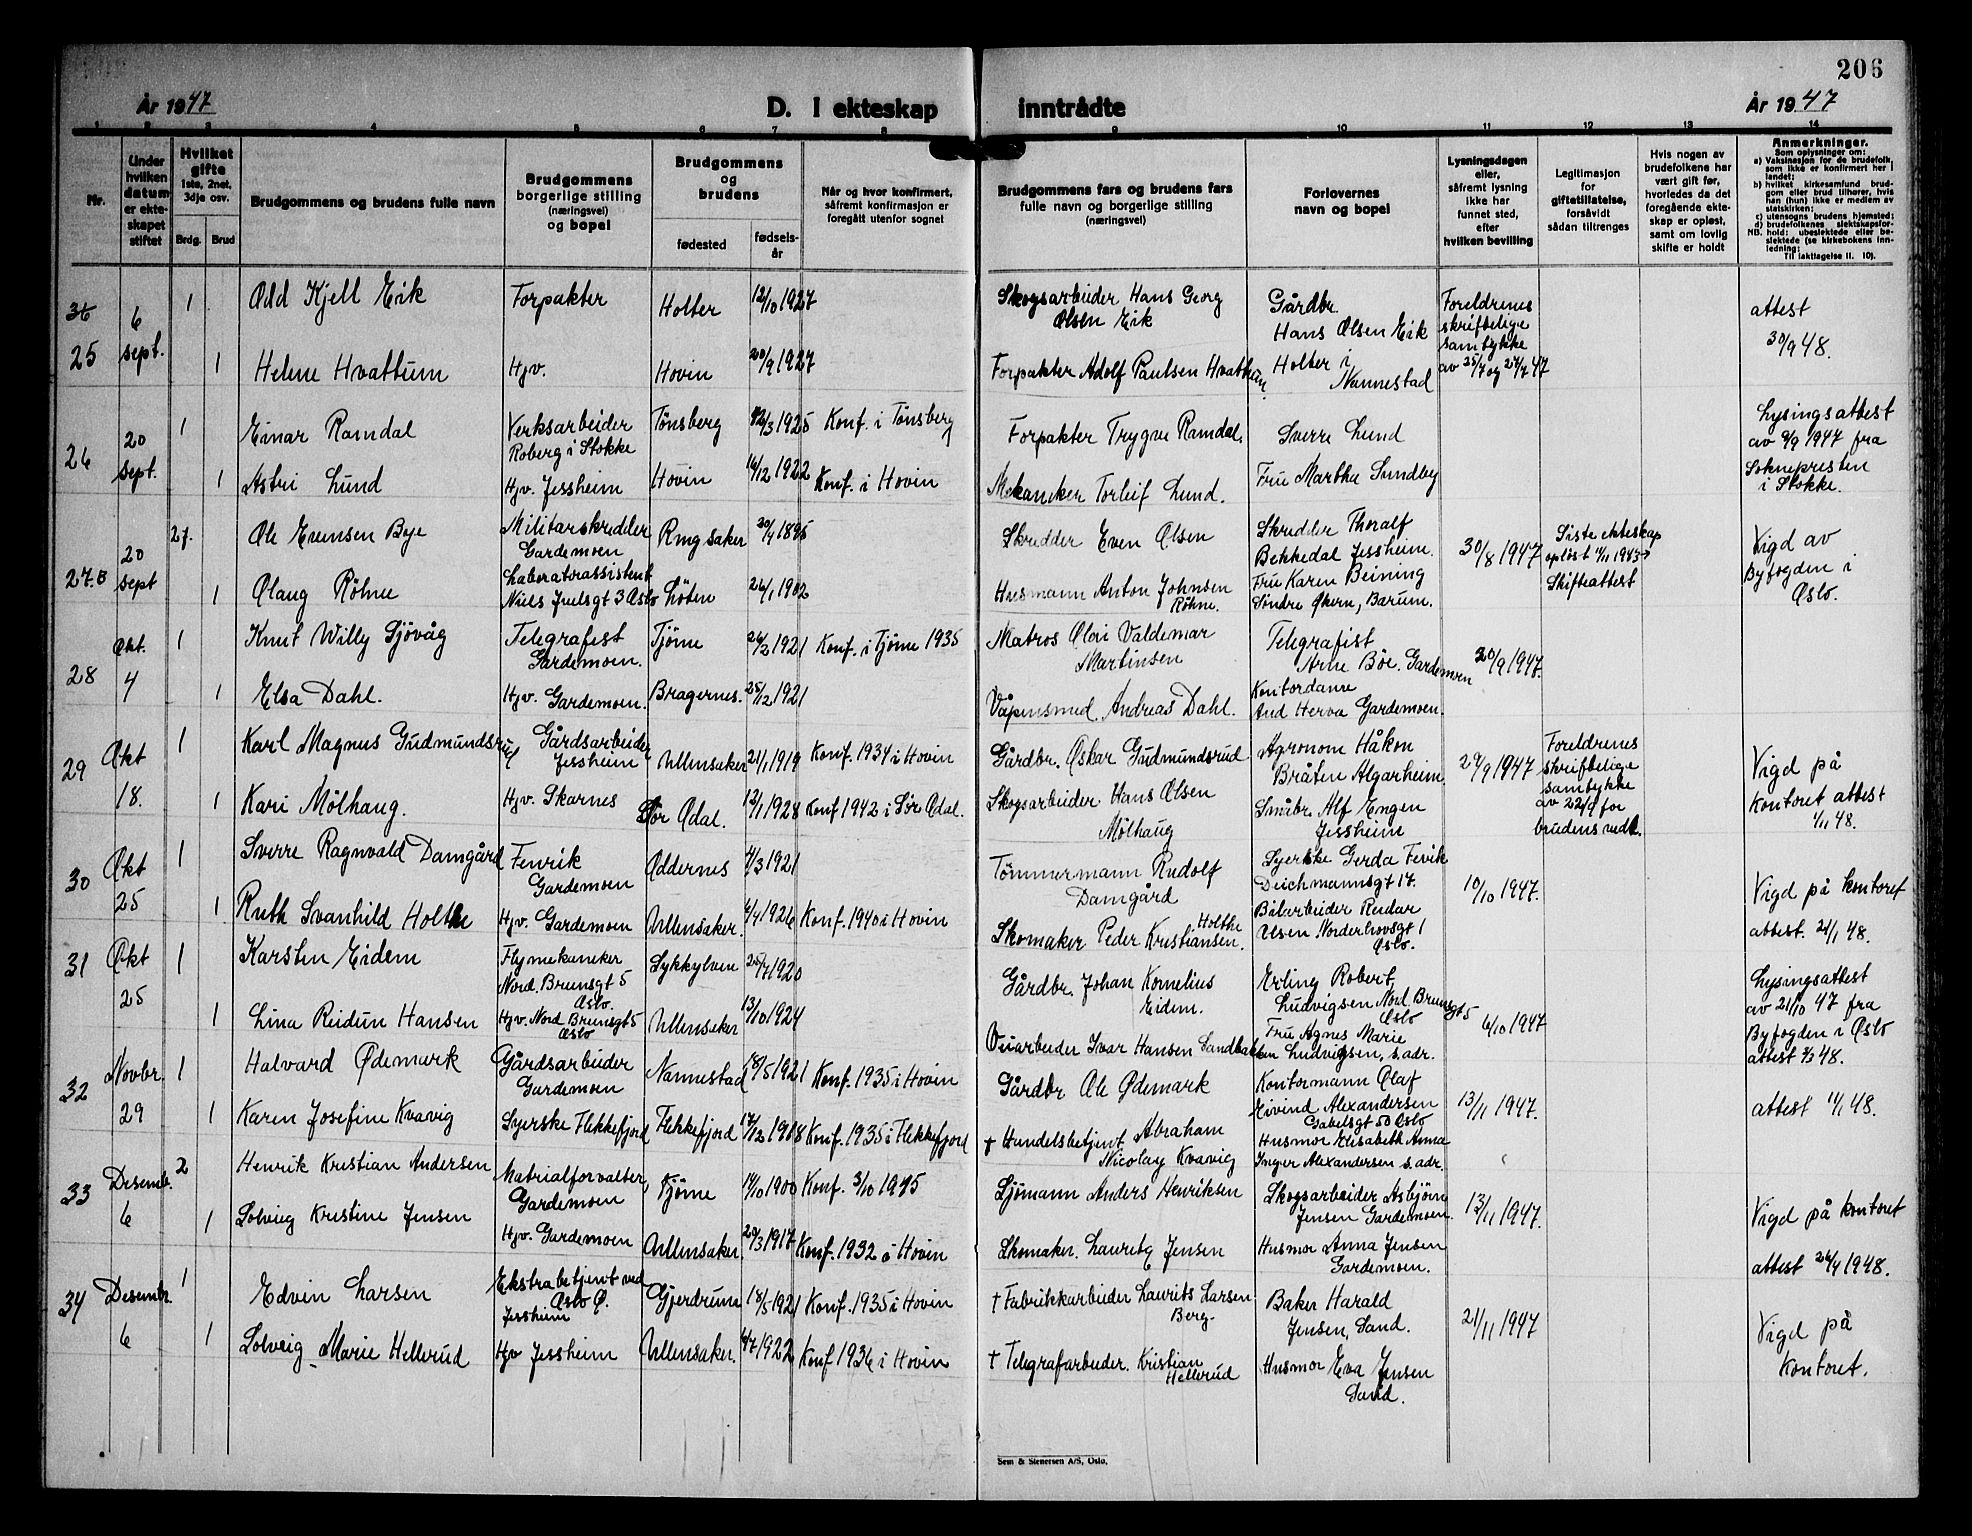 206
År 1947
D. I ekteskap inntrådte
År 1947
1 2 3 4 5 6 7 8 9 10 11 12 13 14
Nr.
Under hvilken datum er ekteskapet stiftet
Hvilket gifte
1ste, 2net, 3dje osv.
Brdg. Brud
Brudgommens og brudens fulle navn
Brudgommens borgerlige stilling (næringsvei) og bopel
Brudgommens og brudens
fødested
fødselsår
Når og hvor konfirmert, såfremt konfirmasjon er foregått utenfor sognet
Brudgommens fars og brudens fars fulle navn og borgerlige stilling (næringsvei)
Forlovernes navn og bopel
Lysningsdagen eller, såfremt lysning ikke har funnet sted, efter hvilken bevilling
Legitimasjon for giftetillatelse, forsåvidt sådan tiltrenges
Hvis nogen av brudefolkene har vært gift før, hvorledes da det foregående ekteskap er opløst, samt om lovlig skifte er holdt
Anmerkninger.
Som oplysninger om:
a) Vaksinasjon for de brudefolk, som ikke er konfirmert her i landet;
b) hvilket kirkesamfund brudgom eller brud tilhører, hvis han (hun) ikke er medlem av statskirken;
c) utensogns brudens hjemsted;
d) brudefolkenes slektskapsforhold: ubeslektede eller beslektede (se kirkebokens innledning;
NB.
Til iakttagelse II. 10).
25
6 sept.
1
Odd Kjell Eik
Forpakter
Holter
12/10 1927
Skogsarbeider Hans Georg Olsen Eik
Gårdbr. Hans Olsen Eik
Foreldrenes skriftelige samtykke av 25/7 og 27/7 47
attest 30/9 48.
1
Helene Hvattum
Hjv.
Hovin
20/9 1927
Forpakter Adolf Paulsen Hvattum
Holter i Nannestad
26
20 sept.
1
Einar Ramdal
Verksarbeider Roberg i Stokke
Tønsberg
12/3 1925
Konf. i Tønsberg
Forpakter Trygve Ramdal.
Sverre Lund
Lysingsattest av 9/9 1947 fra Soknepresten i Stokke.
1
Astri Lund
Hjv. Jessheim
Hovin
16/12 1922
Konf. i Hovin
Mekaniker Torleif Lund.
Fru Marthe Sundby
27.B
20 sept
27.
Ole Evensen Bye
Militærskredder Gardemoen
Ringsaker
30/4 1895
Skredder Even Olsen
Skredder Thoralf Bekkedal Jessheim.
30/8 1947
Siste ekteskap opløst 4/11 1943 Skifteattest
Vigd av Byfogden i Oslo.
1
Olaug Röhne
Laboratorassistent Niels Juelsgt 3 Oslo
Löten
26/1 1902
Husmann Anton Johnsen Röhne.
Fru Karen Beining Söndre Økern, Bærum.
28
Okt. 4
1
Knut Willy Sjövåg
Telegrafist Gardemoen.
Tjöme
26/2 1921
Konf. i Tjöme 1935
Matros Olai Valdemar Martinsen
Telegrafist Arne Böe. Gardemoen
20/9 1947.
1
Elsa Dahl.
Hjv. Gardemoen.
Bragernes.
25/12 1921
Våpensmed Andreas Dahl.
Kontordame Aud Herva Gardemoen.
29
Okt 18.
1
Karl Magnus Gudmundsrud
Gårdsarbeider Jessheim
Ullensaker
21/1 1919
Konf. 1934 i Hovin
Gårdbr. Oskar Gudmundsrud
Agronom Håkon Bråten Algarheim
27/9 1947
Foreldrenes skriftelige samtykke av 22/9 for brudens vedk.
Vigd på kontoret attest 1/11 48.
1
Kari Mölhaug.
Hjv. Skarnes
Sör Odal.
12/1 1928
Konf 1942 i Sör Odal.
Skogsarbeider Hans Olsen Mölhaug
Småbr. Alf Engen Jessheim
30
Okt 25
1
Sverre Ragnvald Damgård
Fenrik Gardemoen
Oddernes
4/3 1921
Tömmermann Rudolf Damgård
Syerske Gerda Fevik Deichmannsgt 17.
10/10 1947.
Vigd på kontoret attest. 21/1 48.
1
Ruth Svanhild Holthe
Hjv. Gardemoen
Ullensaker.
4/4 1926
Konf. 1940 i Hovin
Skomaker Peder Kristiansen. Holthe
Bilarbeider Reidar Olsen Norderhovsgt 1 Oslo.
31
Okt 25
1
Karsten Eidem
Flymekaniker Nord. Brunsgt 5 Oslo.
Sykkylven
25/7 1920
Gårdbr. Johan Kornelius Eidem.
Erling Robert Ludvigsen Nord Brunsgt 5 Oslo
6/10 1947
Lysingsattest av 21/10 47 fra Byfogden i Oslo attest 9/3 48.
1
Lina Reidun Hansen
Hjv. Nord Brunsgt 5 Oslo
Ullensaker
13/10 1924
Veiarbeider Ivar Hansen Sandbakken
Fru Agnes Marie Ludvigsen, s. adr.
32
Novbr. 29
1
Halvard Ødemark
Gårdsarbeider Gardemoen
Nannestad
18/5 1921
Konf. 1935 i Hovin
Gårdbr Ole Ødemark
Kontormann Olaf Eivind Alexandersen Gabelsgt 50 Oslo
13/11 1947.
attest 11/1 48.
1
Karen Josefine Kvavig
Syerske Flekkefjord
Flekkefjord
17/12 1918
Konf. 1935 i Flekkefjord
† Handelsbetjent Abraham Nicolay Kvavig
Husmor Elisabeth Anna Inger Alexandersen s. adr.
33
Desemb. 6
2
Henrik Kristian Andersen
Matrialforvalter Gardemoen
Tjöme
14/10 1900
Konf. 3/10 1915
Sjömann Anders Henriksen
Skogsarbeider Asbjörn Jensen Gardemoen.
13/11 1947.
Vigd på kontoret attest 26/4 1948.
1
Solveig Kristine Jensen
Hjv. Gardemoen
Ullensaker
20/3 1917
Konf. 1932 i Hovin
Skomaker. Lauritz Jensen
Husmor Anna Jensen Gardemoen.
34
Desembr. 6
1
Edvin Larsen
Ekstrabetjent ved Oslo Ø. Jessheim
Gjerdrum
18/5 1921
Konf. 1935 i Hovin
† Fabrikkarbeider Laurits Larsen Berg.
Baker Harald Jensen, Sand.
21/11 1947
Vigd på kontoret.
1
Solveig Marie Hellerud
Hjv Jessheim
Ullensaker.
4/7 1922
Konf. 1936 i Hovin
† Telegrafarbeider. Kristian Hellerud
Husmor Eva Jensen Sand.
Sem & Stenersen A/S, Oslo.